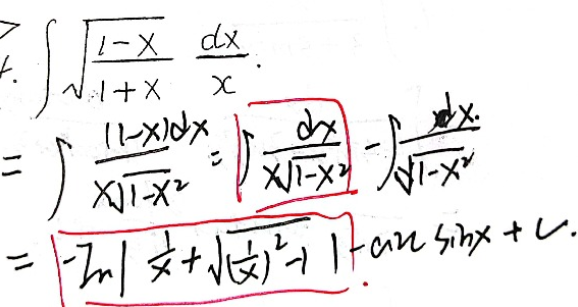 ∫ √((1-x)/(1+x)) dx/x.
= ∫ (1-x)dx / (x√(1-x²)) = ∫ dx / (x√(1-x²)) - ∫ dx. / √(1-x²)
= -ln| 1/x + √((1/x)²-1) | - arc sinx + C.